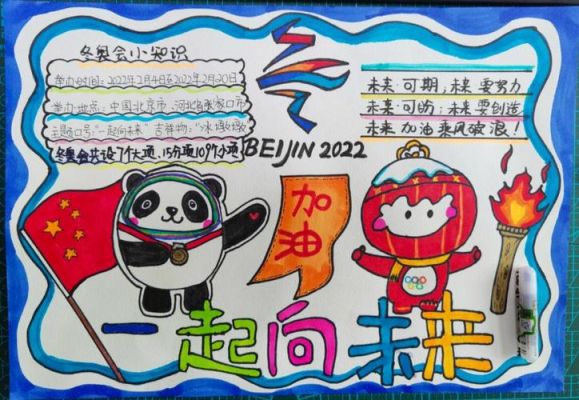 冬奥会小知识
举办时间:2022年2月4日至2022年2月20日
举办地点:中国北京市、河北省张家口市
主题口号:"一起向未来"吉祥物:"冰墩墩
冬奥会共设7个大项、15分项109个小项
未来·可期,未来要努力
未来·可盼:未来要创造
未来加油乘风破浪!
BEIJIN 2022
加油
一起向未来